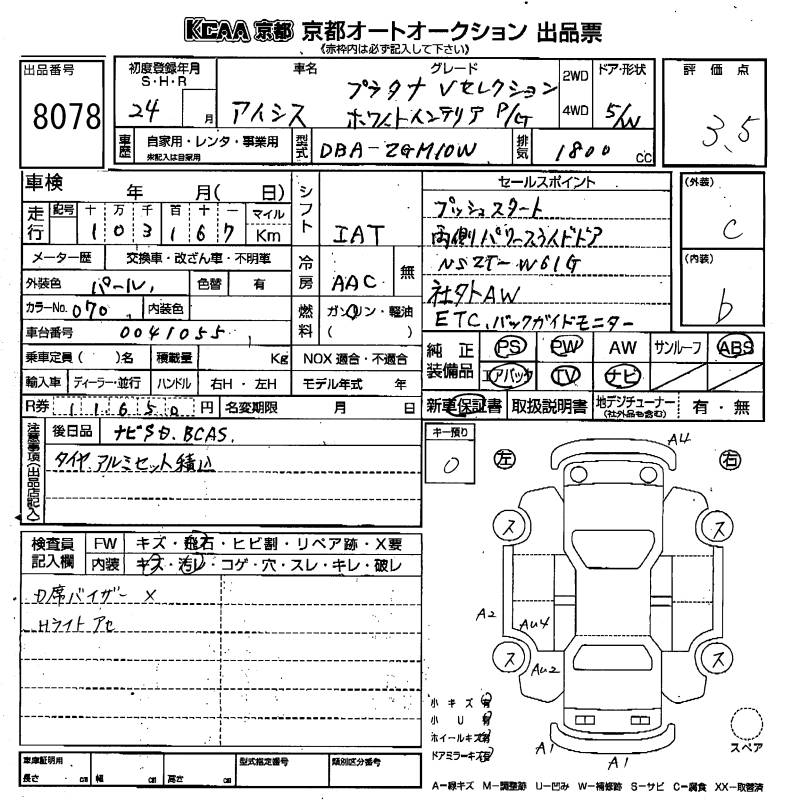 KCAA 京都 京都オートオークション 出品票
《赤枠内は必ず記入して下さい》
出品番号
8078
初度登録年月
S・H・R
24 月
車名
アイシス
グレード
プラタナ Vセレクション
ホワイトインテリア P/G
2WD
4WD
ドア・形状
5/W
評価点
3.5
車歴
自家用・レンタ・事業用
未記入は自家用
型式
DBA-ZGM10W
排気
1800 cc
車検 年 月( 日)
走行
記号 十 万 千 百 十 一 マイル
1 0 3 1 6 7 Km
メーター歴 交換車・改ざん車・不明車
外装色 パール 色替 有
カラーNo. 070 内装色
車台番号 0041055
乗車定員( )名 積載量 Kg
輸入車 ディーラー・並行 ハンドル 右H・左H
R券 11650 円 名変期限 月 日
シフト
IAT
冷房
AAC 無
燃料
ガソリン・軽油
( )
NOX 適合・不適合
モデル年式 年
セールスポイント
プッシュスタート
両側パワースライドドア
NSZT-W61G
社外AW
ETC、バックガイドモニター
(外装)
C
(内装)
b
純正装備品
PS PW AW サンルーフ ABS
エアバック TV ナビ
新車保証書 取扱説明書 地デジチューナー (社外品も含む) 有・無
注意事項(出品店記入)
後日品 ナビSD. BCAS.
タイヤ.アルミセット積込
キー預り
0
検査員記入欄
FW キズ・飛石・ヒビ割・リペア跡・X要
内装 キズ・汚レ・コゲ・穴・スレ・キレ・破レ
D席バイザー X
Hライトアセ
左
右
A4
ス
ス
A2
Au4
ス
Au2
ス
小キズ 有
小U 有
ホイールキズ 有
ドアミラーキズ 有
A1
A1
スペア
車庫証明用
長さ cm 幅 cm 高さ cm
型式指定番号
類別区分番号
A-線キズ M-調整跡 U-凹み W-補修跡 S-サビ C-腐食 XX-取替済